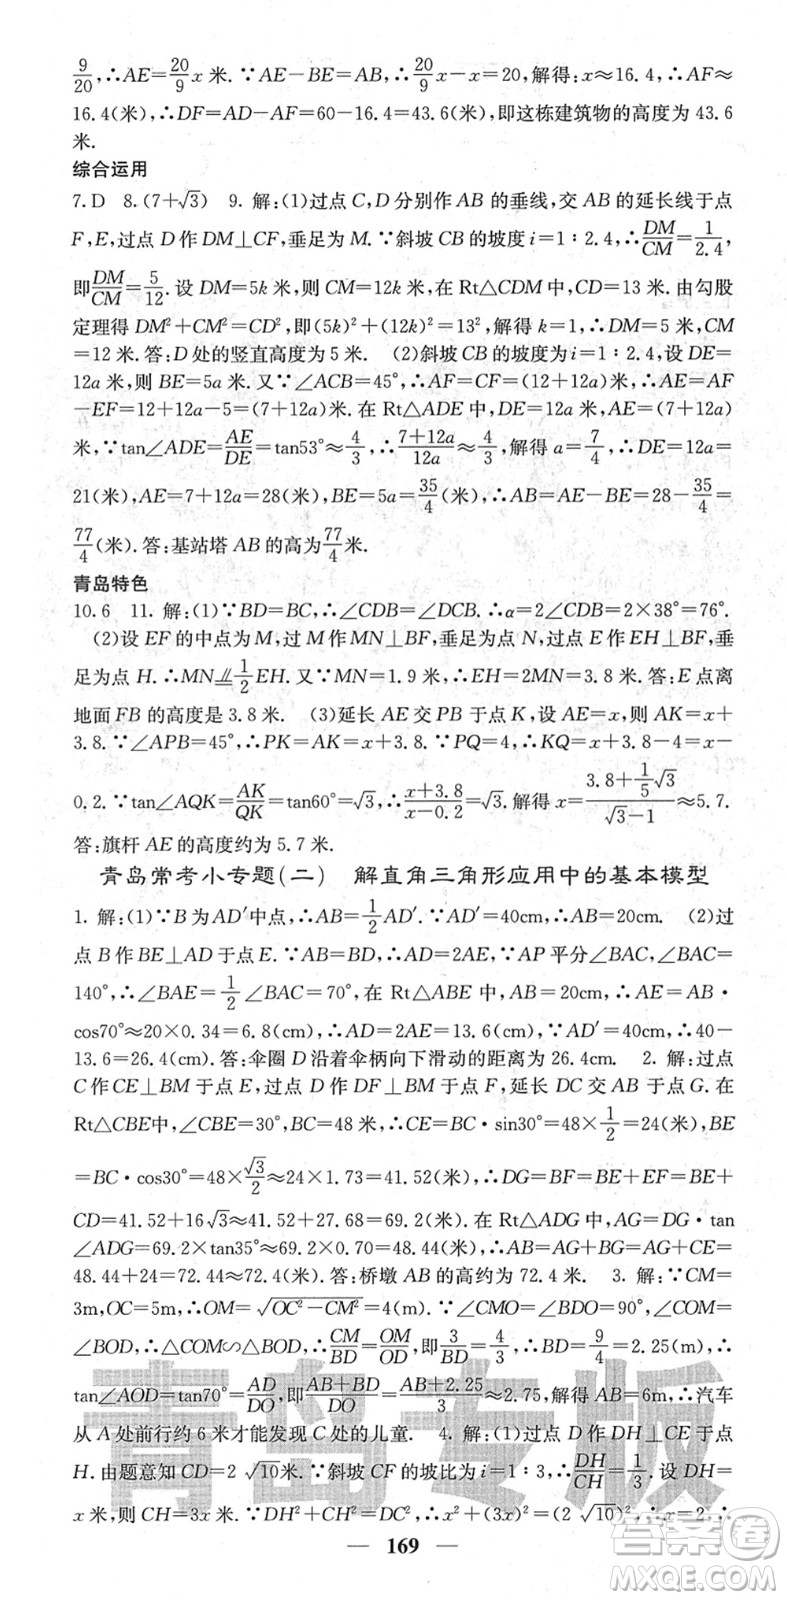 9/20,∴AE=20/9x 米.∵AE−BE=AB,∴20/9x−x=20,解得:x≈16.4,∴AF≈
16.4(米),∴DF=AD−AF=60−16.4=43.6(米),即这栋建筑物的高度为 43.6
米.
综合运用
7.D 8.(7+√3) 9. 解:(1)过点 C,D 分别作 AB 的垂线,交 AB 的延长线于点
F,E,过点 D 作 DM⊥CF,垂足为 M.∵斜坡 CB 的坡度 i=1∶2.4,∴DM/CM=1/2.4,
即DM/CM=5/12.设 DM=5k 米,则 CM=12k 米,在 Rt△CDM 中,CD=13 米.由勾股
定理得 DM²+CM²=CD²,即(5k)²+(12k)²=13²,解得 k=1,∴DM=5 米,CM
=12 米.答:D 处的竖直高度为 5 米. (2)斜坡 CB 的坡度为 i=1∶2.4,设 DE=
12a 米,则 BE=5a 米.又∵∠ACB=45°,∴AF=CF=(12+12a)米,∴AE=AF
−EF=12+12a−5=(7+12a)米.在 Rt△ADE 中,DE=12a 米,AE=(7+12a)
米,∵tan∠ADE=AE/DE=tan53°≈4/3,∴(7+12a)/12a≈4/3,解得 a=7/4,∴DE=12a=
21(米),AE=7+12a=28(米),BE=5a=35/4(米),∴AB=AE−BE=28−35/4=
77/4(米).答:基站塔 AB 的高为77/4米.
青岛特色
10.6 11. 解:(1)∵BD=BC,∴∠CDB=∠DCB.∴α=2∠CDB=2×38°=76°.
(2)设 EF 的中点为 M,过 M 作 MN⊥BF,垂足为点 N,过点 E 作 EH⊥BF,垂
足为点 H.∴MN⫽1/2EH.又∵MN=1.9 米,∴EH=2MN=3.8 米.答:E 点离
地面 FB 的高度是 3.8 米. (3)延长 AE 交 PB 于点 K,设 AE=x,则 AK=x+
3.8.∵∠APB=45°,∴PK=AK=x+3.8.∵PQ=4,∴KQ=x+3.8−4=x−
0.2.∵tan∠AQK=AK/QK=tan60°=√3,∴(x+3.8)/(x−0.2)=√3.解得 x=(3.8+1/5√3)/(√3−1)≈5.7.
答:旗杆 AE 的高度约为 5.7 米.
青岛常考小专题(二) 解直角三角形应用中的基本模型
1. 解:(1)∵B 为 AD′中点,∴AB=1/2AD′.∵AD′=40cm,∴AB=20cm. (2)过
点 B 作 BE⊥AD 于点 E.∵AB=BD,∴AD=2AE,∵AP 平分∠BAC,∠BAC=
140°,∴∠BAE=1/2∠BAC=70°,在 Rt△ABE 中,AB=20cm,∴AE=AB·
cos70°≈20×0.34=6.8(cm),∴AD=2AE=13.6(cm),∵AD′=40cm,∴40−
13.6=26.4(cm).答:伞圈 D 沿着伞柄向下滑动的距离为 26.4cm. 2. 解:过点
C 作 CE⊥BM 于点 E,过点 D 作 DF⊥BM 于点 F,延长 DC 交 AB 于点 G.在
Rt△CBE 中,∠CBE=30°,BC=48 米,∴CE=BC·sin30°=48×1/2=24(米),BE
=BC·cos30°=48×√3/2≈24×1.73=41.52(米),∴DG=BF=BE+EF=BE+
CD=41.52+16√3≈41.52+27.68=69.2(米).在 Rt△ADG 中,AG=DG·tan
∠ADG=69.2×tan35°≈48.44(米),∴AB=AG+BG=AG+CE=
48.44+24=72.44≈72.4(米).答:桥墩 AB 的高约为 72.4 米. 3. 解:∵CM=
3m,OC=5m,∴OM=√(OC²−CM²)=4(m).∵∠CMO=∠BDO=90°,∠COM=
∠BOD,∴△COM∽△BOD,∴CM/BD=OM/OD,即3/BD=4/3,∴BD=9/4=2.25(m),∴
tan∠AOD=tan70°=AD/DO,即(AB+BD)/DO=(AB+2.25)/3≈2.75,解得 AB=6m,∴汽车
从 A 处前行约 6 米才能发现 C 处的儿童. 4. 解:(1)过点 D 作 DH⊥CE 于点
H.由题意知 CD=2√10米.∵斜坡 CF 的坡比为 i=1∶3,∴DH/CH=1/3.设 DH=
x 米,则 CH=3x 米.∵DH²+CH²=DC²,∴x²+(3x)²=(2√10)²,∴x=2,∴
— 169 —
青岛专版
答案圈
MXQE.COM